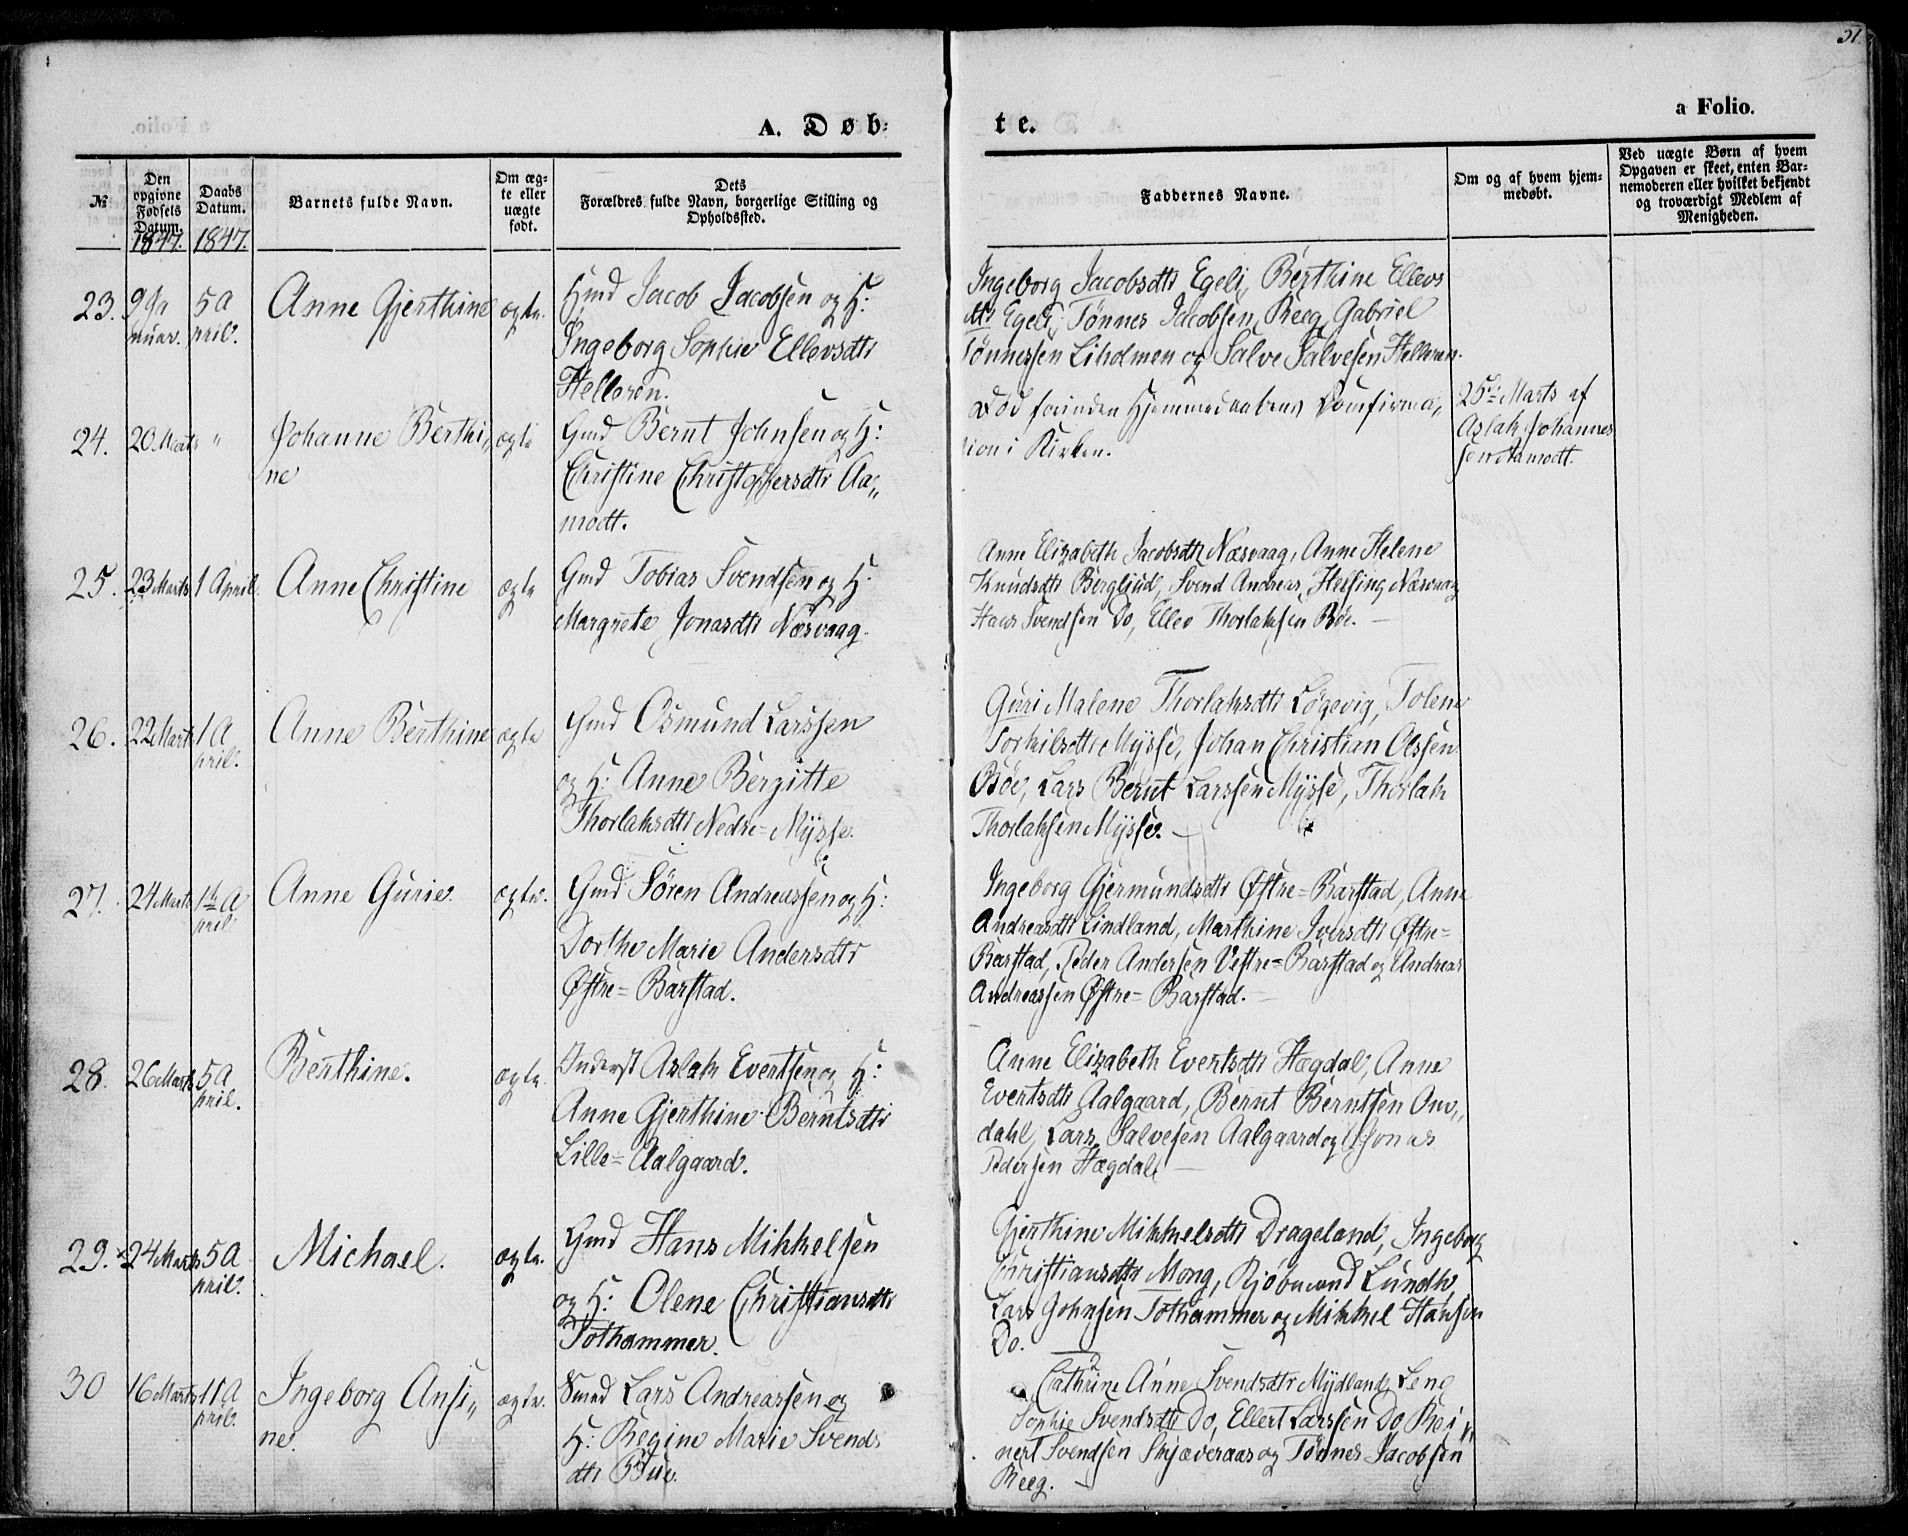 51.
A. Døb-
te.
a Folio.
№
Den opgivne Fødsels Datum.
1847.
Daabs Datum.
1847.
Barnets fulde Navn.
Om ægte eller uægte født.
Dets Forældres fulde Navn, borgerlige Stilling og Opholdssted.
Faddernes Navne.
Om og af hvem hjemmedøbt.
Ved uægte Børn af hvem Opgaven er skeet, enten Barnemoderen eller hvilket bekjendt og troværdigt Medlem af Menigheden.
23. 9 Ja 5 A Anne Gjerthine ægte. Hmd Jacob Jacobsen og H:
nuar. pril. Ingeborg Sophie Ellevsdtr
Helleren.
Ingeborg Jacobsdtr Egeli, Berthine Ellevs
dtr Egeli, Tønnes Jacobsen Reeg, Gabriel
Tønnessen Liholmen og Salve Salvesen Helleren.
24. 20 Marts " Johanne Berthi„ ægte Gmd Bernt Johnsen og H:
ne Christine Christophersdtr Aa„
modt.
Død forinden Hjemmedaabens Confirma„
tion i Kirken.
25de Marts af
Aslak Johannes
sen Aamodt.
25. 23 Marts 1 April. Anne Christine ægte Gmd Tobias Svendsen og H.
Margrete Jonasdtr Næsvaag.
Anne Elizabeth Jacobsdtr Næsvaag, Anne Helene
Knudsdtr Bergljud, Svend Andreas Helsing Næsvaag
Hans Svendsen Do, Ellev Thorlaksen Bøe.
26. 22 Marts 1 A Anne Berthine ægte Gmd Osmund Larssen
pril. og H: Anne Bergitte
Thorlaksdtr Nedre=Mysse.
Guri Malene Thorlaksdtr Løgevig, Tolene
Torkilsdtr Mysse, Johan Christian Olssen
Bøe, Lars Bernt Larssen Mysse, Thorlak
Thorlaksen Mysse.
27. 24 Marts 1ste A Anne Gurie. ægte. Gmd Søren Andreassen og H:
pril Dorthe Marie Andersdtr
Østre=Barstad.
Ingeborg Gjermundsdtr Østre=Barstad, Anne
Andreasdtr Lindland, Marthine Iversdtr Østre=
Barstad, Peder Andersen Vestre=Barstad og Andreas
Andreassen Østre=Barstad.
28. 26 Marts 5 A Berthine. ægte. Inderst Aslak Evertsen og H:
pril. Anne Gjerthine Berntsdtr
Lille=Aalgaard.
Anne Elizabeth Evertsdtr Hægdal, Anne
Evertsdtr Aalgaard, Bernt Berntsen Om„
dahl, Lars Salvesen Aalgaard og Jonas
Pedersen Hægdal
29. 24 Marts 5 A Michael. ægte. Gmd Hans Mikkelsen
pril. og H: Olene Christiansdtr
Tothammer.
Gjerthine Mikkelsdtr Drageland, Ingeborg
Christiansdtr Mong, Kjøbmand Lundh,
Lars Johnsen Tothammer og Mikkel Hansen
Do.
30 16 Marts 11 A Ingeborg Ansi„ ægte. Smed Lars Andreassen og
pril. ne. H: Regine Marie Svends
dtr Bue.
Cathrine Anne Svendsdtr Mydland, Lene
Sophie Svendsdtr Do, Ellert Larssen Do Rei„
nert Svendsen Skjæveraas og Tønnes Jacobsen
Reeg.